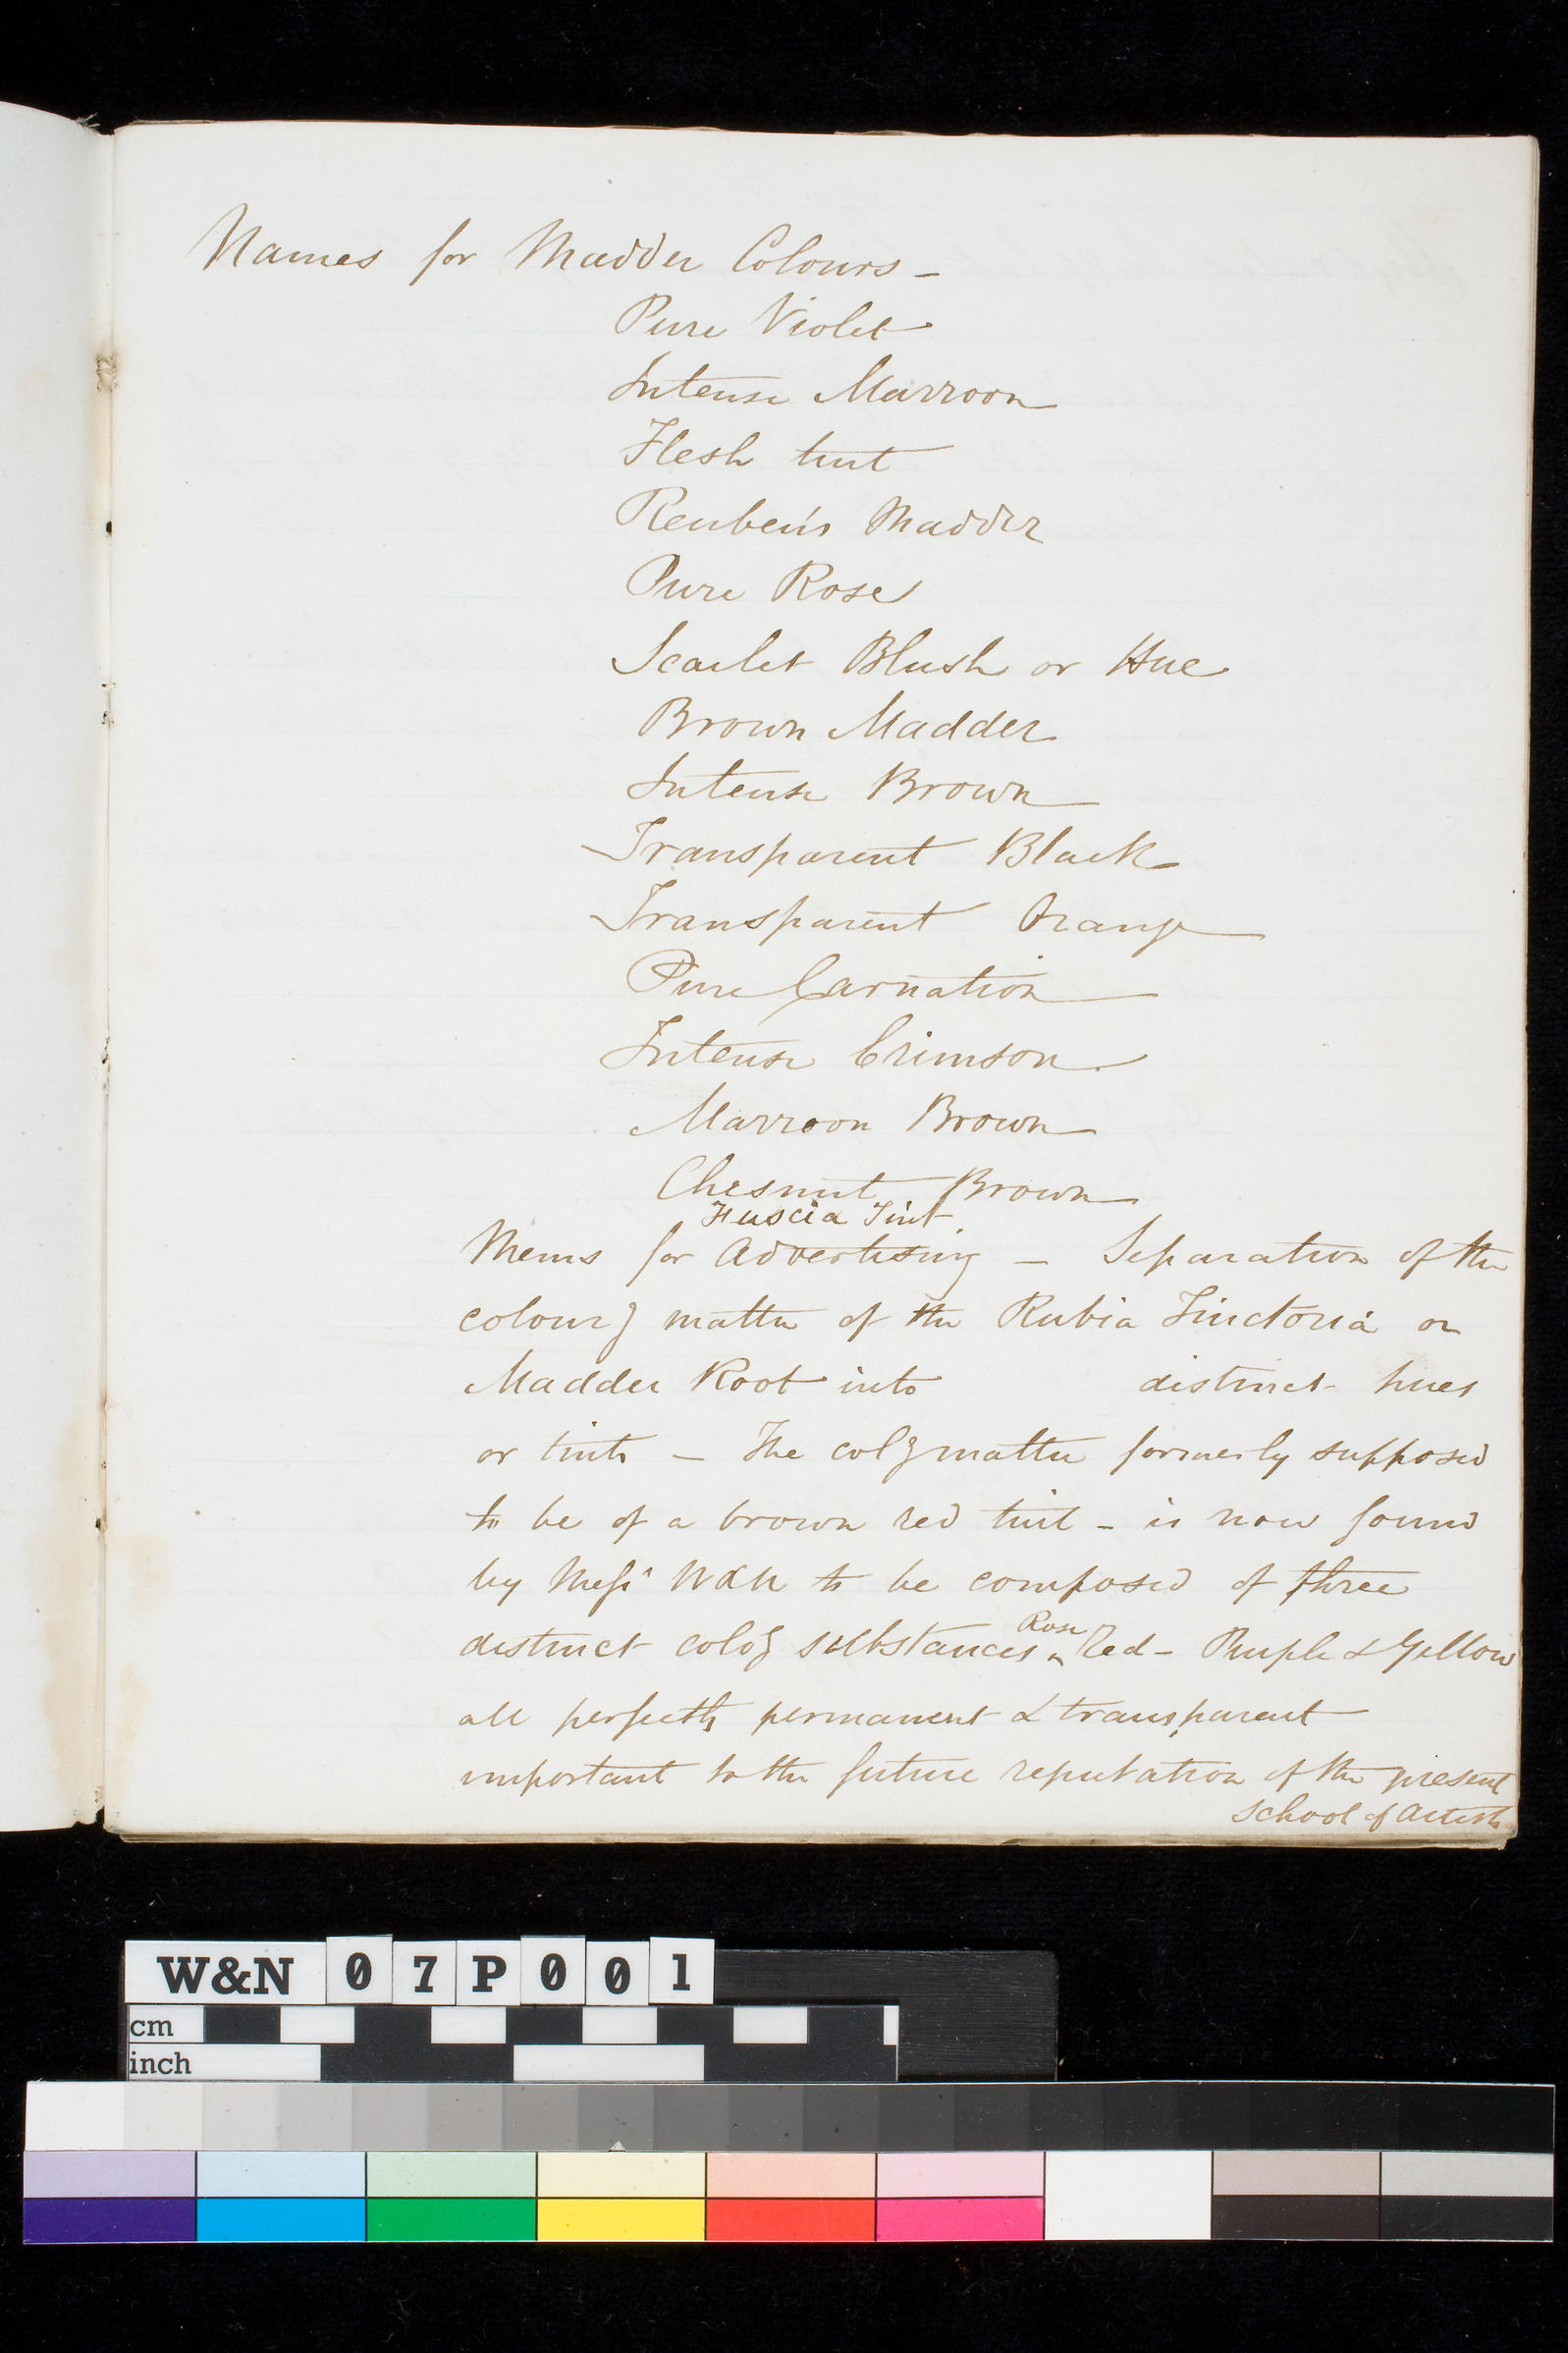 Names for Madder Colours -
Pure Violet
Intense Marroon
Flesh tint
Reuben's Madder
Pure Rose
Scarlet Blush or Hue
Brown Madder
Intense Brown
Transparent Black
Transparent Orange
Pure Carnation
Intense Crimson
Marroon Brown
Chesnut Brown
Fuscia Tint
Mems for Advertising - Separation of the
colourg matter of the Rubia Tinctoria or
Madder Root into distinct hues
or tints - The colg matter formerly supposed
to be of a brown red tint - is now found
by Messrs W&N to be composed of three
Rose
distinct colog substances ^ Red - Purple & Yellow
all perfectly permanent & transparent
important to the future reputation of the present
school of Artists
W&N 07P001
cm
inch